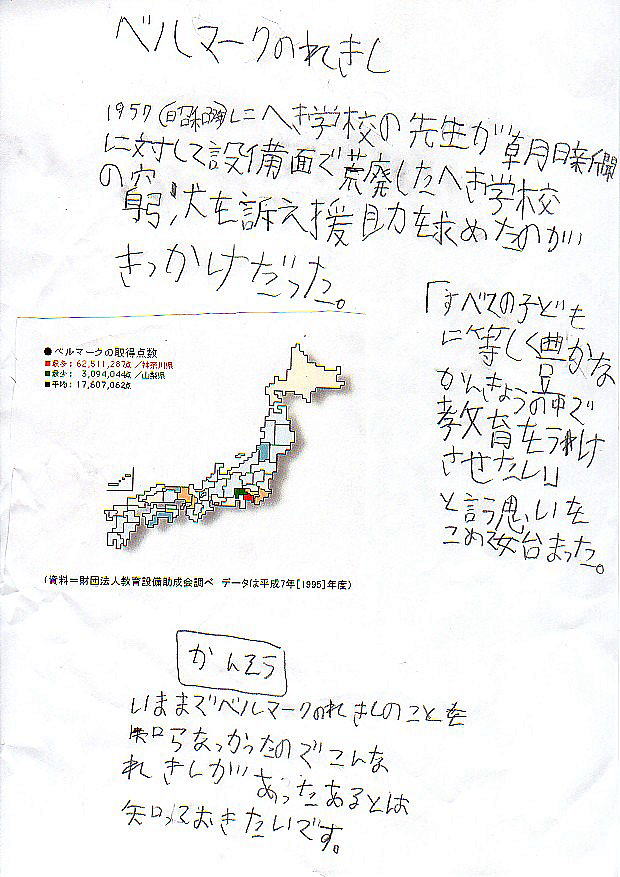 ベルマークのれきし
1957(昭和32)にへき学校の先生が朝日新聞
に対して設備面で荒廃したへき学校
の窮状を訴え援助を求めたのが
きっかけだった。
「すべての子ども
に等しく豊かな
かんきょうの中で
教育をうけ
させたい」
と言う思いを
こめて始まった。
●ベルマークの取得点数
■最多：62,511,287点／神奈川県
■最少：3,094,044点／山梨県
■平均：17,607,062点
(資料＝財団法人教育設備助成会調べ データは平成7年[1995]年度)
かんそう
いままでベルマークのれきしのことを
知らなかったのでこんな
れきしがあったあるとは
知っておきたいです。